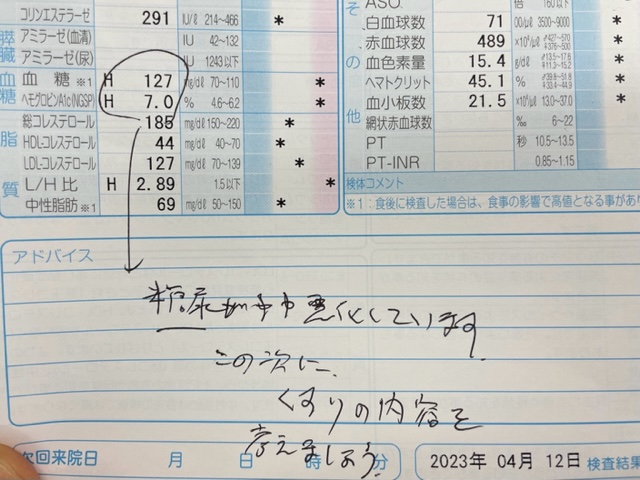 コリンエステラーゼ 291 IU/ℓ 214~466 *
アミラーゼ(血清) IU 42~132
アミラーゼ(尿) IU 1243以下
血糖 ※1 H 127 mg/dℓ 70~110 *
ヘモグロビンA1c(NGSP) H 7.0 % 4.6~6.2 *
総コレステロール 185 mg/dℓ 150~220 *
HDL-コレステロール 44 mg/dℓ 40~70 *
LDL-コレステロール 127 mg/dℓ 70~139 *
L/H 比 H 2.89 1.5以下 *
中性脂肪 ※1 69 mg/dℓ 50~150 *
膵臓
血糖
脂質
その他
ASO 倍 160以下
白血球数 71 00/μℓ 3500~9000 *
赤血球数 489 ×10⁴/μℓ ♂427~570 ♀376~500 *
血色素量 15.4 g/dℓ ♂13.5~17.6 ♀11.3~15.2 *
ヘマトクリット 45.1 % ♂39.8~51.8 ♀33.4~44.9 *
血小板数 21.5 ×10⁴/μℓ 13.0~37.0 *
網状赤血球数 ‰ 6~22
PT 秒 10.5~13.5
PT-INR 0.85~1.15
検体コメント
※1:食後に検査した場合は、食事の影響で高値となる事があり
アドバイス
糖尿がやや悪化しています.
この次に、
くすりの内容を
考えましょう.
次回来院日 月 日 時 分
2023年 04月 12日 検査結果